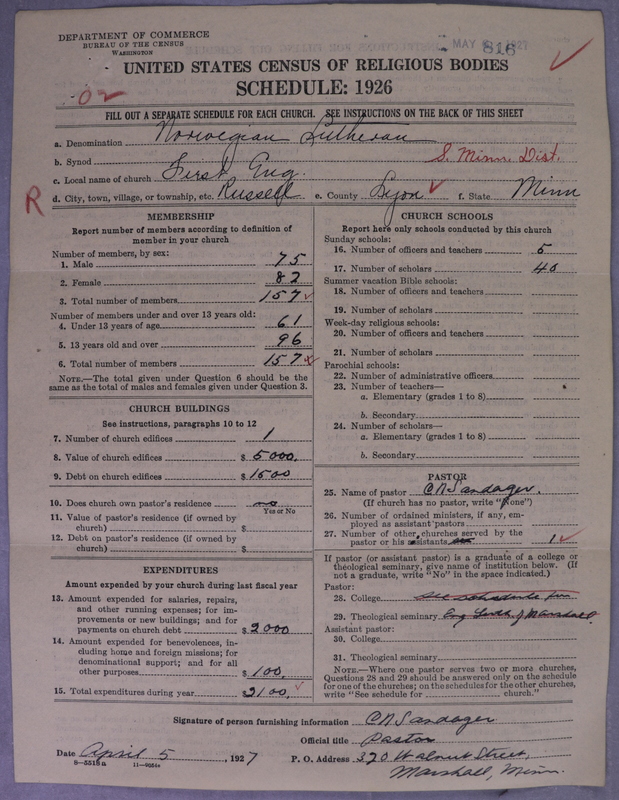 DEPARTMENT OF COMMERCE
BUREAU OF THE CENSUS
WASHINGTON
MAY 1927
816
UNITED STATES CENSUS OF RELIGIOUS BODIES
SCHEDULE: 1926
02
FILL OUT A SEPARATE SCHEDULE FOR EACH CHURCH. SEE INSTRUCTIONS ON THE BACK OF THIS SHEET
a. Denomination Norwegian Lutheran
b. Synod S. Minn. Dist.
c. Local name of church First Eng.
R
d. City, town, village, or township, etc. Russell e. County Lyon f. State Minn
MEMBERSHIP
Report number of members according to definition of
member in your church
Number of members, by sex:
1. Male 75
2. Female 82
3. Total number of members 157
Number of members under and over 13 years old:
4. Under 13 years of age 61
5. 13 years old and over 96
6. Total number of members 157
NOTE.—The total given under Question 6 should be the
same as the total of males and females given under Question 3.
CHURCH BUILDINGS
See instructions, paragraphs 10 to 12
7. Number of church edifices 1
8. Value of church edifices $ 5000.
9. Debt on church edifices $ 1500
10. Does church own pastor's residence no
Yes or No
11. Value of pastor's residence (if owned by
church) $
12. Debt on pastor's residence (if owned by
church) $
EXPENDITURES
Amount expended by your church during last fiscal year
13. Amount expended for salaries, repairs,
and other running expenses; for im-
provements or new buildings; and for
payments on church debt $ 2000
14. Amount expended for benevolences, in-
cluding home and foreign missions; for
denominational support; and for all
other purposes $ 100.
15. Total expenditures during year $ 2100.
CHURCH SCHOOLS
Report here only schools conducted by this church
Sunday schools:
16. Number of officers and teachers 5
17. Number of scholars 40
Summer vacation Bible schools:
18. Number of officers and teachers
19. Number of scholars
Week-day religious schools:
20. Number of officers and teachers
21. Number of scholars
Parochial schools:
22. Number of administrative officers
23. Number of teachers—
a. Elementary (grades 1 to 8)
b. Secondary
24. Number of scholars—
a. Elementary (grades 1 to 8)
b. Secondary
PASTOR
25. Name of pastor C N Sandager.
(If church has no pastor, write "None")
26. Number of ordained ministers, if any, em-
ployed as assistant pastors
27. Number of other churches served by the
pastor or his assistants 1
If pastor (or assistant pastor) is a graduate of a college or
theological seminary, give name of institution below. (If
not a graduate, write "No" in the space indicated.)
Pastor:
28. College See schedule for
29. Theological seminary Eng. Luth. of Marshall.
Assistant pastor:
30. College
31. Theological seminary
NOTE.—Where one pastor serves two or more churches,
Questions 28 and 29 should be answered only on the schedule
for one of the churches; on the schedules for the other churches,
write "See schedule for church."
Signature of person furnishing information C N Sandager
Official title Pastor
Date April 5, 1927 P. O. Address 320 Walnut Street,
8—5518a 11—9651a Marshall, Minn.